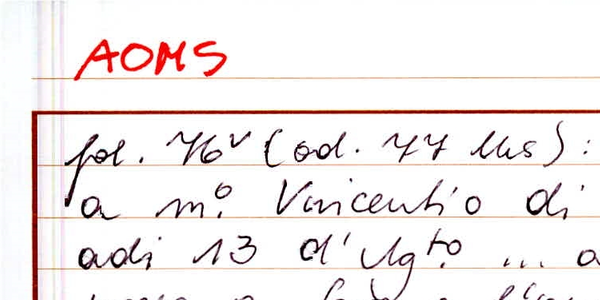 AOMS
fol. 76v (od. 77 Uhs):
a mo. Vincentio di
adi 13 d'Agto ... a